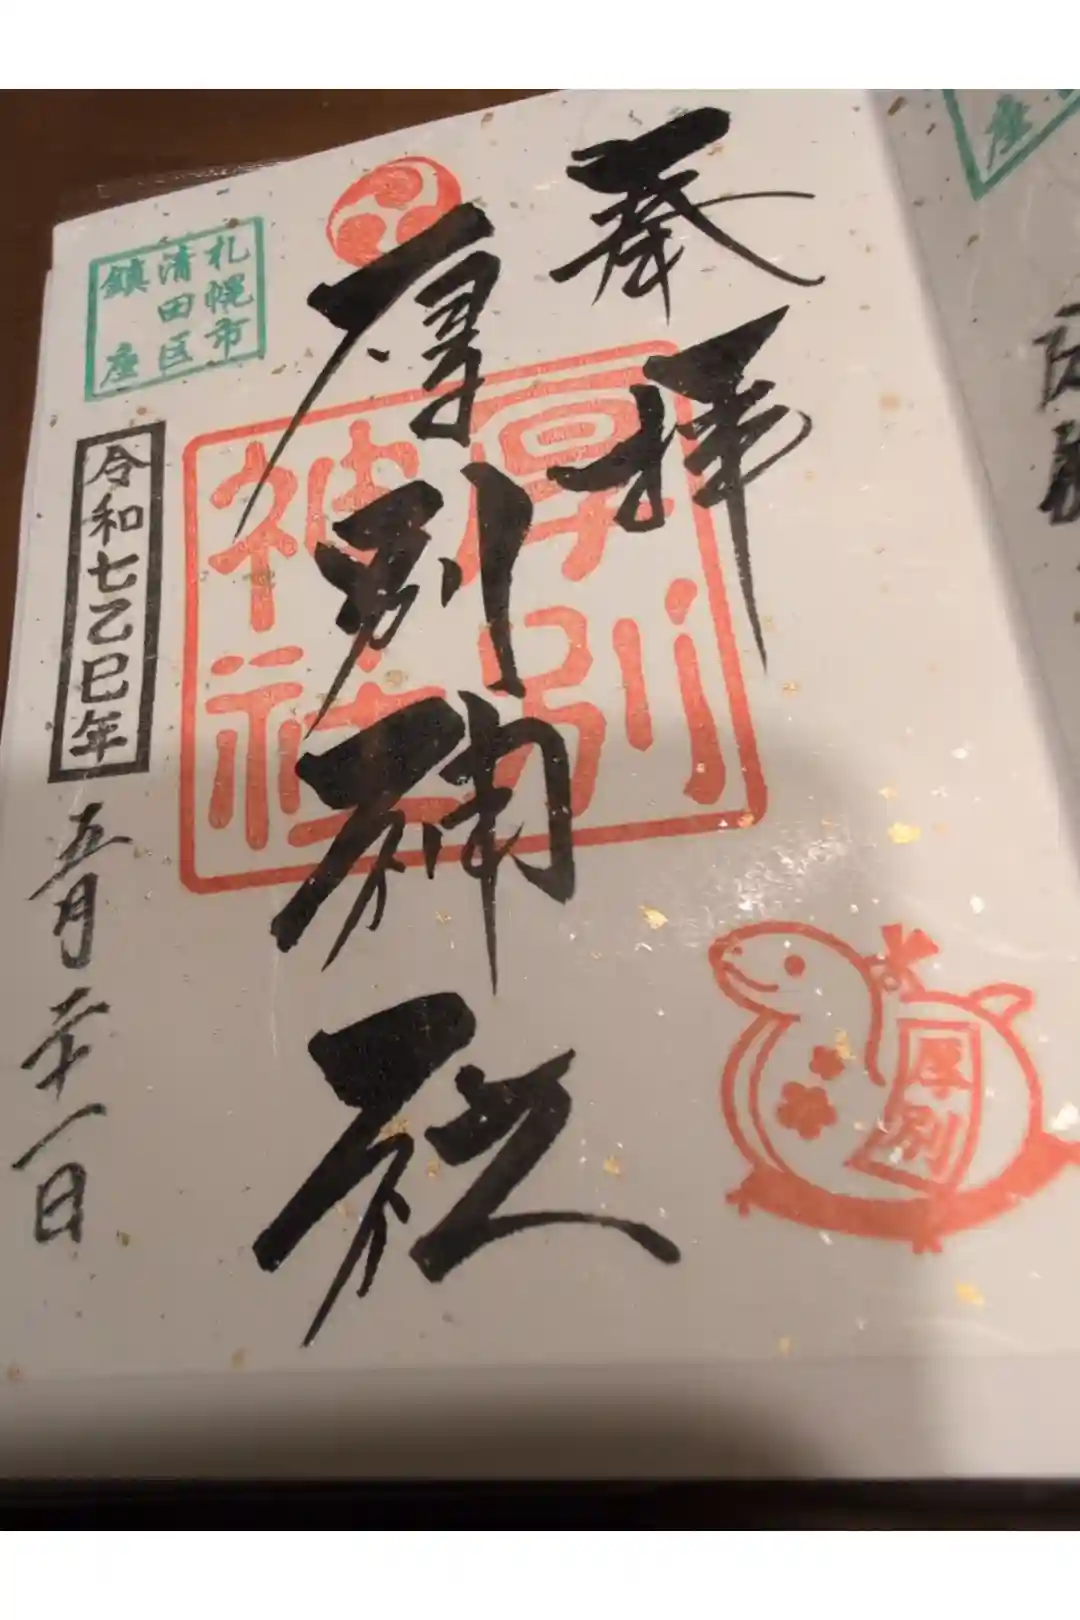 奉拝
厚別神社
厚別
神社
札幌市
清田区
鎮座
令和七乙巳年
五月二十一日
厚別
座